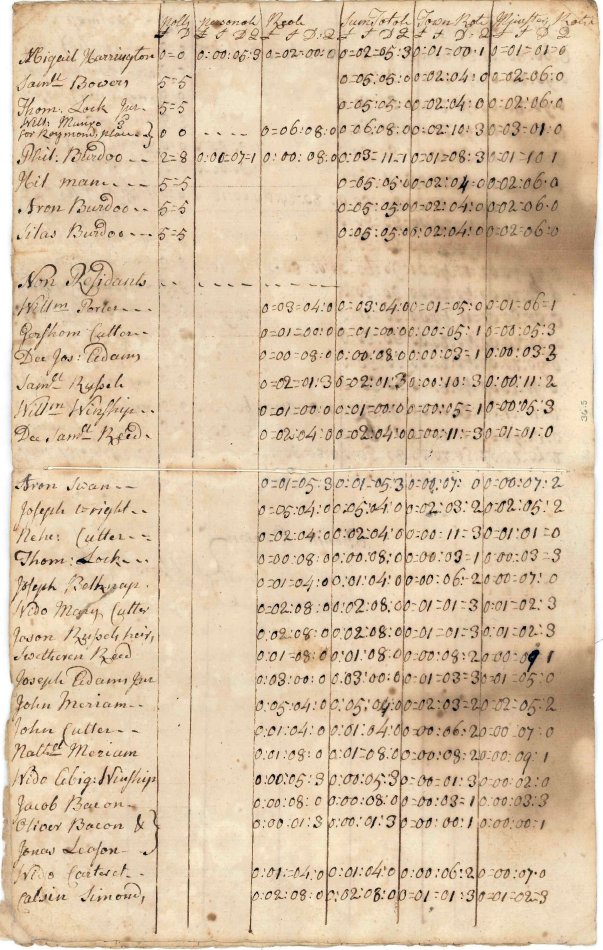 Polls Personal Reale Sum Total Town Rate Minister Rate
£ D £ S D Q £ S D: Q £ S D Q £ S D Q £ S D Q
Abigail Harrington 0=0 0:00:05:3 0=02=00:0 0=02=05:3 0=01=00:1 0=01=01=0
Saml Bowers 5=5 0=05:05:0 0=02:04:0 0=02=06:0
Thom: Lock Jur - 5=5 0=05:05:0 0=02:04:0 0=02=06:0
Willm Munro
for Raymonds place } 0 0 - - - - 0=06:08:0 0=06:08:0 0=02=10:3 0=03=01:0
Phil: Burdoo -- 2=8 0:00=07=1 0:00:08:0 0:03=11=1 0=01=08:3 0=01=10 1
5=5 0=05:05:0 0=02:04:0 0=02=06:0
Aron Burdoo -- 5=5 0=05:05:0 0=02:04:0 0=02=06:0
Silas Burdoo -- 5=5 0=05:05:0 0=02:04:0 0=02=06:0
Non Residants - - - -
Willm Porter -- 0=03=04:0 0=03=04:0 0=01=05:0 0=01=06=1
Gershom Cutter -- 0=01=00:0 0=01=00:0 0:00:05:1 0=00:05:3
Dec Jos: Adams 0=00=08:0 0:00:08:0 0:00:03=1 0:00:03:3
Samll Russell 0=02=01:3 0=02:01:3 0=00:10:3 0:00:11:2
Willm Winship -- 0=01=00:0 0=01=00:0 0:00:05=1 0=00:05:3
Dec Samll Reed - 0=02:04:0 0=02:04:0 0=00=11=3 0=01=01:0
Aron Swan -- 0=01=05:3 0:01=05:3 0=00:07: 0 0=00:07:2
Joseph Wright -- 0=05:04:0 0:05:04:0 0=02:03:2 0=02:05:2
Nehe: Cutter -- 0=02:04:0 0:02:04:0 0=00=11=3 0:01:01=0
Thom: Lock -- 0=00:08:0 0:00:08:0 0:00:03=1 0:00=03=3
Joseph Belknap - 0=01=04:0 0:01:04:0 0=00:06:2 0=00:07:0
Wido Mary Cutter 0=02:08:0 0:02:08:0 0=01=01=3 0:01=02:3
Jason Russels heirs 0:02:08:0 0:02:08:0 0=01=01=3 0:01=02:3
Reed 0:01=08:0 0:01:08:0 0=00:08:2 0=00=09 1
Joseph Adams Jur 0:03:00:0 0:03:00:0 0=01=03=3 0=01=05:0
John Meriam -- 0:05:04:0 0:05:04:0 0=02:03=2 0=02=05:2
John Cutter -- 0:01:04:0 0:01:04:0 0=00:06:2 0=00=07:0
Nathll Meriam 0:01:08:0 0:01=08:0 0=00:08:2 0=00:09:1
Wido Abig: Winship 0:00:05:3 0:00:05:3 0=00=01:3 0=00=02:0
Jacob Bacon - 0:00:08:0 0:00:08:0 0=00:03=1 0:00:03:3
Oliver Bacon & } 0:00:01:3 0:00:01:3 0=00:00:1 0:00:00:1
Jonas Leason --
Wido Carteret - 0:01=04:0 0:01:04:0 0=00:06:2 0=00:07:0
Calvin Simonds 0:02:08:0 0:02:08:0 0=01=01:3 0=01=02=3